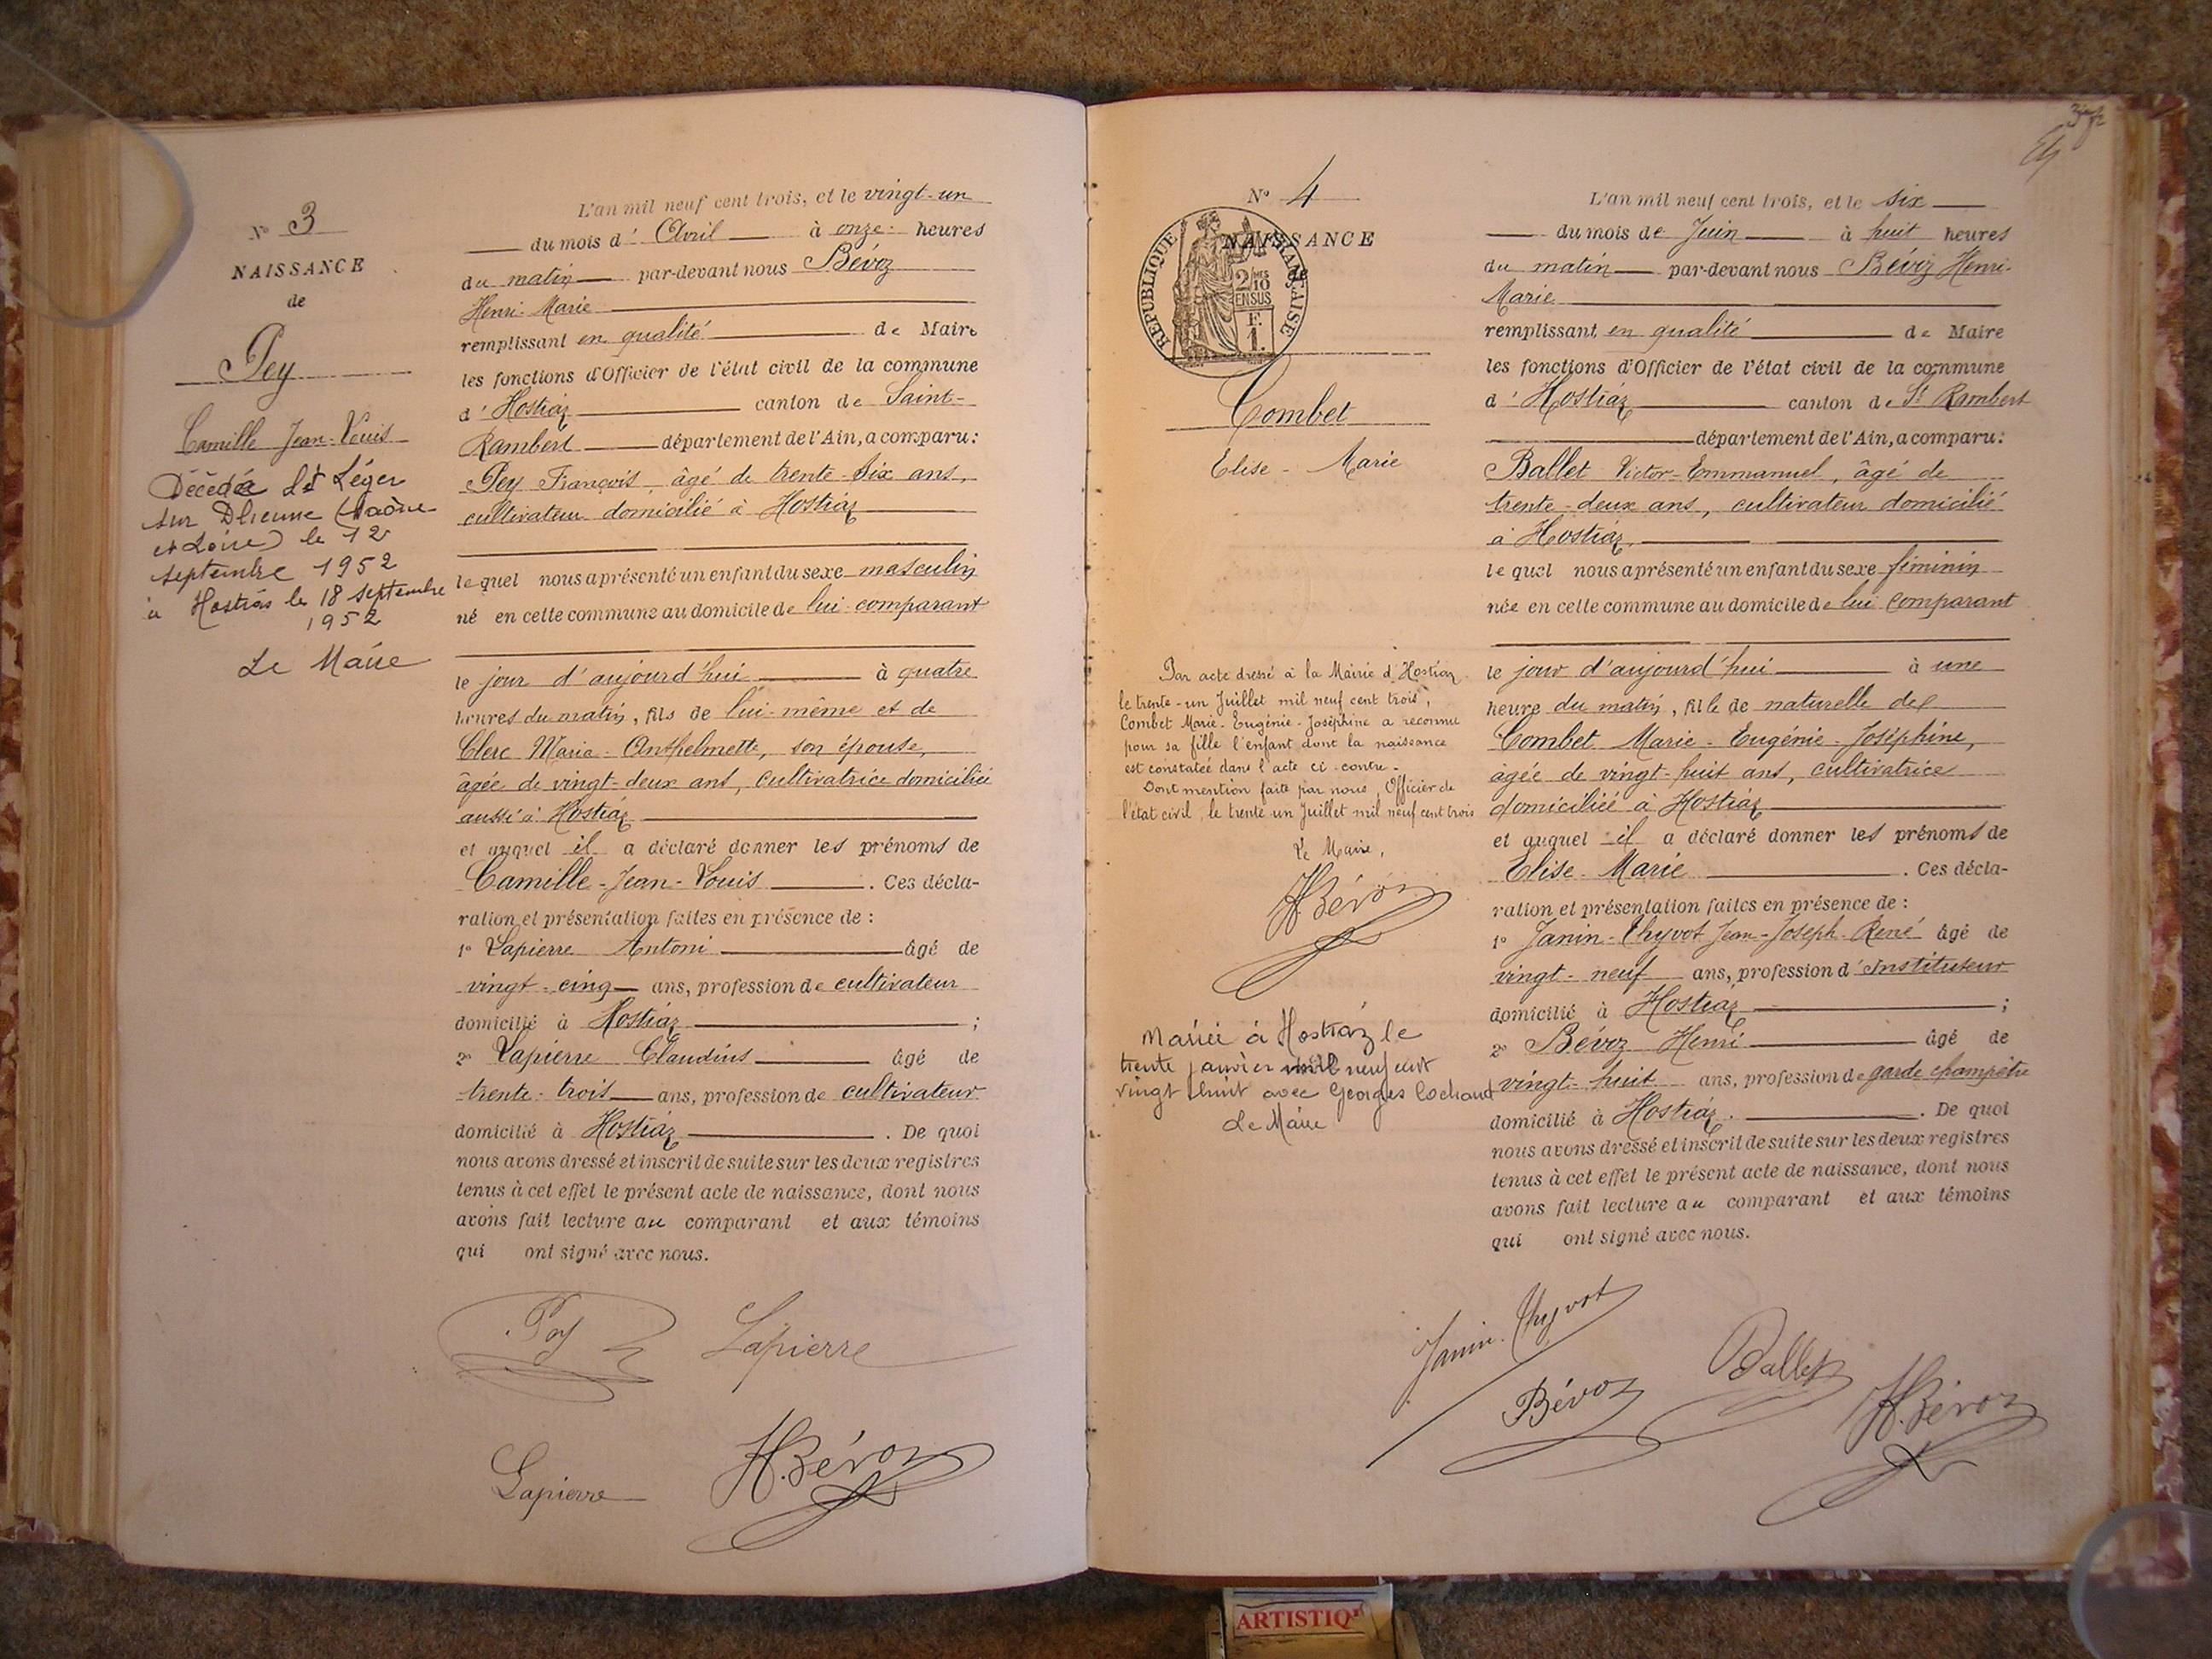 N° 3
NAISSANCE
de
Pey
Camille Jean-Louis
Décédé à St Léger
sur Dheune (Saône
et Loire) le 12
septembre 1952
à Hostiás le 18 septembre
1952
Le Maire
L'an mil neuf cent trois, et le vingt-un
du mois d' Avril à onze heures
du matin par-devant nous Bévoz
Henri-Marie
remplissant en qualité de Maire
les fonctions d'Officier de l'état civil de la commune
d' Hostiaz canton de Saint-
Rambert département de l'Ain, a comparu:
Pey François, âgé de trente-six ans,
cultivateur domicilié à Hostiaz
lequel nous a présenté un enfant du sexe masculin
né en cette commune au domicile de lui comparant
le jour d'aujourd'hui à quatre
heures du matin, fils de lui-même et de
Clerc Maria-Anthelmette, son épouse,
âgée de vingt-deux ans, cultivatrice domiciliée
aussi à Hostiaz
et auquel il a déclaré donner les prénoms de
Camille-Jean-Louis. Ces décla-
ration et présentation faites en présence de :
1° Lapierre Antoni âgé de
vingt-cinq ans, profession de cultivateur
domicilié à Hostiaz ;
2° Lapierre Claudius âgé de
trente-trois ans, profession de cultivateur
domicilié à Hostiaz. De quoi
nous avons dressé et inscrit de suite sur les deux registres
tenus à cet effet le présent acte de naissance, dont nous
avons fait lecture au comparant et aux témoins
qui ont signé avec nous.
Pey Lapierre
Lapierre H. Bévoz
N° 4
NAISSANCE
RÉPUBLIQUE FRANÇAISE
2/10 EN SUS
F.
1.
Combet
Elise-Marie
Par acte dressé à la Mairie d'Hostiaz
le trente-un Juillet mil neuf cent trois,
Combet Marie-Eugénie-Joséphine a reconnu
pour sa fille l'enfant dont la naissance
est constatée dans l'acte ci-contre.
Dont mention faite par nous, Officier de
l'état civil, le trente un Juillet mil neuf cent trois
Le Maire,
H. Bévoz
Mariée à Hostiaz le
trente janvier mil neuf cent
vingt huit avec Georges Cochand
Le Maire
L'an mil neuf cent trois, et le six
du mois de Juin à huit heures
du matin par-devant nous Bévoz Henri-
Marie
remplissant en qualité de Maire
les fonctions d'Officier de l'état civil de la commune
d' Hostiaz canton de St Rambert
département de l'Ain, a comparu:
Ballet Victor-Emmanuel, âgé de
trente-deux ans, cultivateur domicilié
à Hostiaz,
lequel nous a présenté un enfant du sexe féminin
née en cette commune au domicile de lui comparant
le jour d'aujourd'hui à une
heure du matin, fille de naturelle de
Combet Marie-Eugénie-Joséphine,
âgée de vingt-huit ans, cultivatrice
domiciliée à Hostiaz
et auquel il a déclaré donner les prénoms de
Elise-Marie. Ces décla-
ration et présentation faites en présence de :
1° Janin-Thyvot Jean-Joseph-René âgé de
vingt-neuf ans, profession d'Instituteur
domicilié à Hostiaz ;
2° Bévoz Henri âgé de
vingt-huit ans, profession de garde champêtre
domicilié à Hostiaz. De quoi
nous avons dressé et inscrit de suite sur les deux registres
tenus à cet effet le présent acte de naissance, dont nous
avons fait lecture au comparant et aux témoins
qui ont signé avec nous.
Janin-Thyvot
Bévoz Ballet H. Bévoz
ARTISTIQ